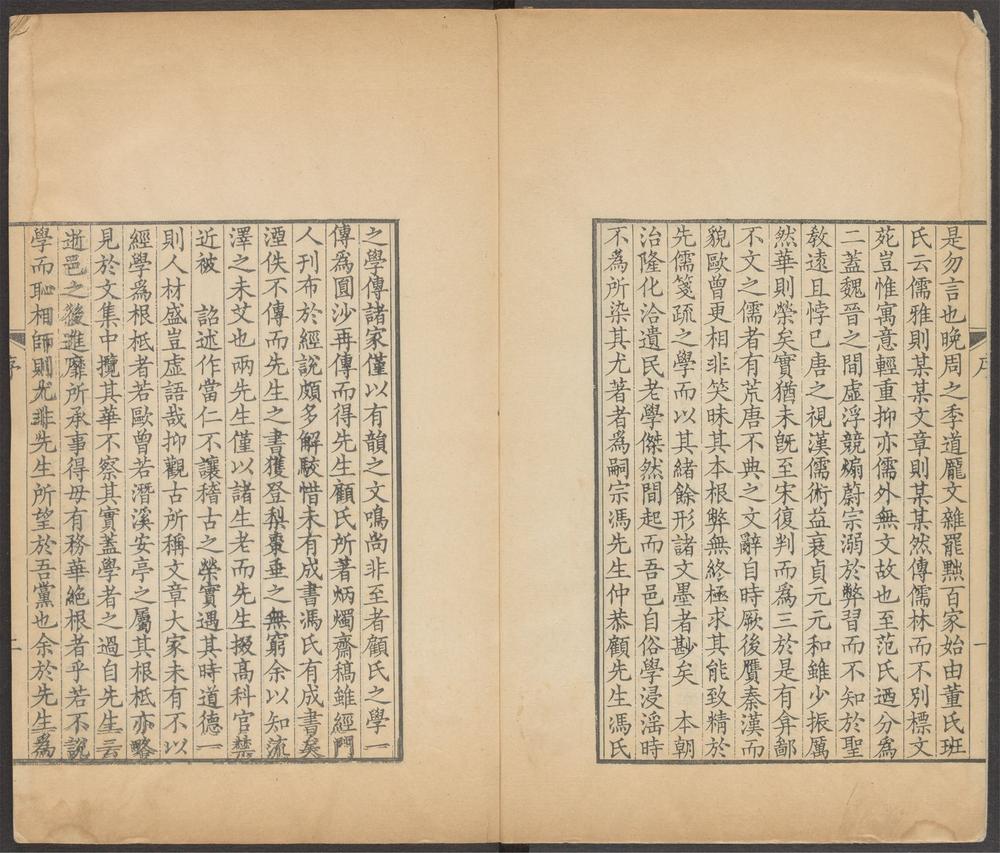 是勿言也晚周之季道龎文雜罷黜百家始由董氏班
氏云儒雅則某某文章則某某然傳儒林而不別標文
苑豈惟寓意輕重抑亦儒外無文故也至范氏迺分爲
二蓋魏晉之間虛浮競煽蔚宗溺於弊習而不知於聖
敎遠且悖已唐之視漢儒術益衰貞元元和雖少振厲
然華則榮矣實猶未旣至宋復判而爲三於是有弇鄙
不文之儒者有荒唐不典之文辭自時厥後贋秦漢而
貌歐曾更相非笑昧其本根弊無終極求其能致精於
先儒箋疏之學而以其緒餘形諸文墨者尠矣 本朝
治隆化洽遺民老學傑然間起而吾邑自俗學浸淫時
不爲所染其尤著者爲嗣宗馮先生仲恭顧先生馮氏
序
一
之學傳諸家僅以有韻之文鳴尚非至者顧氏之學一
傳爲圓沙再傳而得先生顧氏所著炳燭齋稿雖經門
人刊布於經說頗多解駮惜未有成書馮氏有成書矣
湮佚不傳而先生之書獲登梨棗垂之無窮余以知流
澤之未艾也兩先生僅以諸生老而先生掇高科官禁
近被 詔述作當仁不讓稽古之榮實遇其時道德一
則人材盛豈虛語哉抑觀古所稱文章大家未有不以
經學爲根柢者若歐曾若潛溪安亭之屬其根柢亦略
見於文集中攬其華不察其實蓋學者之過自先生云
逝邑之後進靡所承事得毋有務華絕根者乎若不說
學而恥相師則尤非先生所望於吾黨也余於先生爲
序
二